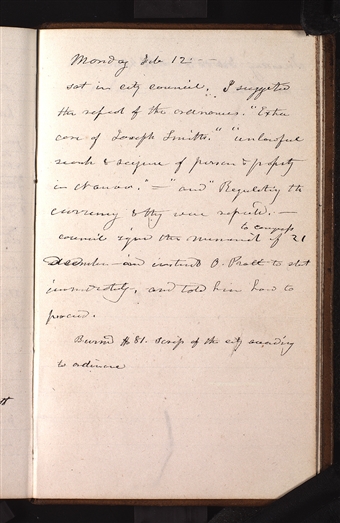 Monday Feb 12.
sat in city council. I suggested
the repeal of the ordinances. "Extra
case of Joseph Smiths." "unlawful
search & seizure of person & property
in Nauvoo." — "and" Regulating the
currency & they were repeald. —
to congress
council sign the memorial of 21
december — and instructed O. Pratt to start
immediately, and told him how to
proceed.
Burnd $81. scrip of the city according
to ordinance